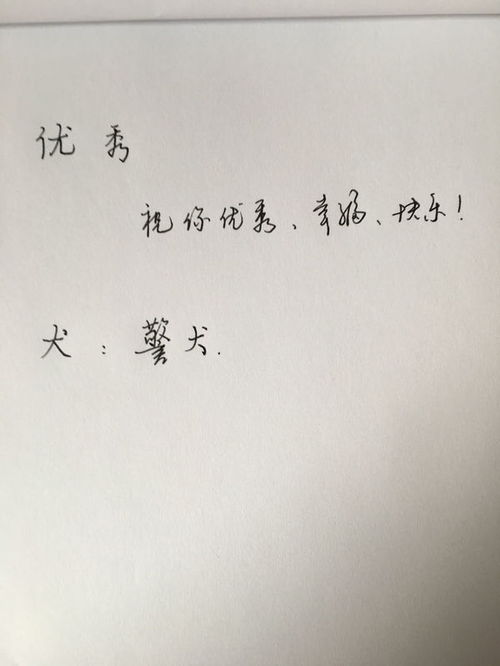 优秀
祝你优秀、幸福、快乐！
犬：警犬.